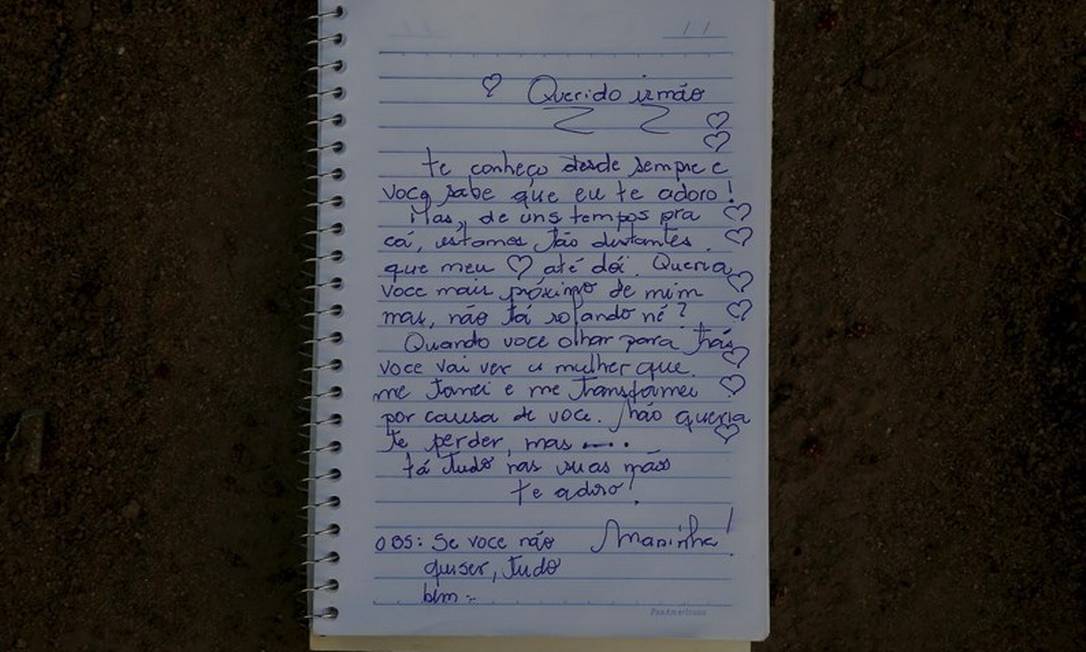 / /
♡ Querido irmão
♡
♡
te conheço desde sempre e
voce sabe que eu te adoro!
Mas, de uns tempos pra ♡
cá, estamos tão distantes. ♡
que meu ♡ até dói. Queria
voce mais próximo de mim ♡
mas, não tá rolando né? ♡
Quando voce olhar para trás
voce vai ver a mulher que ♡
me tornei e me transformei ♡
por causa de voce. não queria
te perder, mas .... ♡
tá tudo nas suas mãos
te adoro!
OBS: Se voce não Maninha!
quiser, tudo
bem :-
PanAmericana